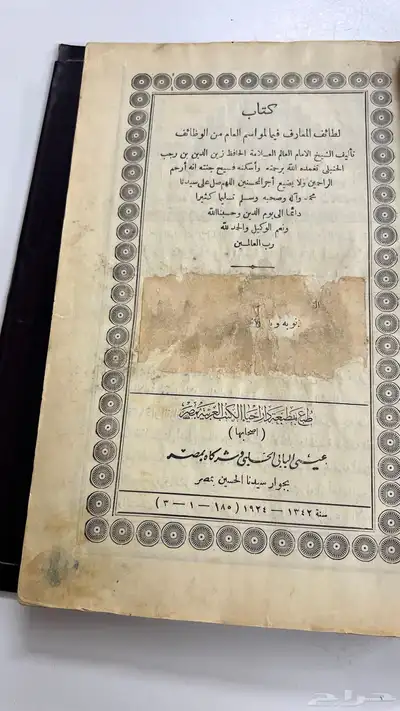 كتاب
لطائف المعارف فيما لمواسم العام من الوظائف
تأليف الشيخ الامام العالم العلامة الحافظ زين الدين بن رجب
الحنبلي تغمده الله برحمته وأسكنه فسيح جنته انه أرحم
الراحمين ولا يضيع أجر المحسنين اللهم صل على سيدنا
محمد وآله وصحبه وسلم تسليما كثيرا
دائما الى يوم الدين وحسبنا الله
ونعم الوكيل والحمد لله
رب العالمين
طبع بمطبعة دار احياء الكتب العربية بمصر
(اصحابها)
عيسى البابى الحلبى وشركاه بمصر
بجوار سيدنا الحسين بمصر
سنة ١٣٤٢ — ١٩٢٤ (١٨٥ — ١ — ٣)
حراج